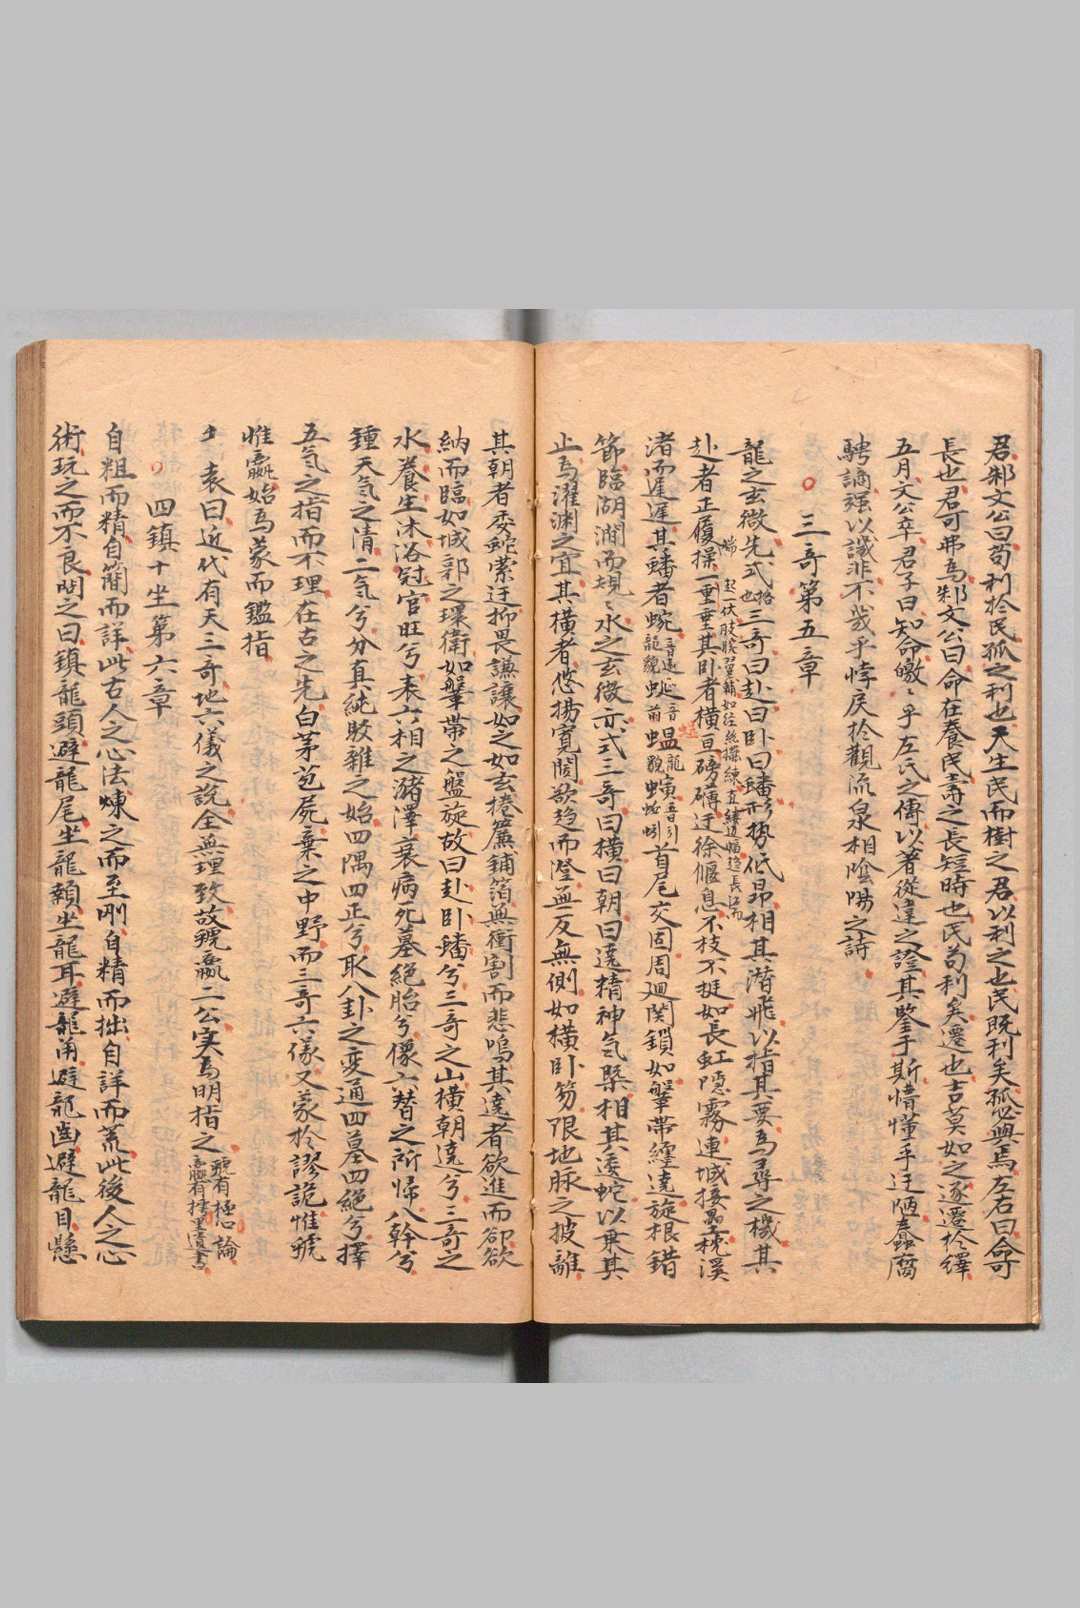 君邾文公曰苟利於民孤之利也天生民而樹之君以利之也民既利矣孤必與焉左右曰命可
長也君可弗為邾文公曰命在養民壽之長短時也民苟利矣遷也吉莫如之遂遷於繹
五月文公卒君子曰知命皦〻乎左氏之傳以著從違之證其鑒乎斯惜懂乎迂陋蠢腐
騁謫强以譏非不哉乎悖戾於觀流泉相陰陽之詩
三奇第五章
龍之玄微先式格也三奇曰赴曰卧曰蟠形勢低昂相其潛飛以指其要為尋之機其
赴者正履操一重重其卧者橫亘磅礡迂徐偃息不枝不挺如長虹隱霧連城接壘枕溪
渚而遲遲其蟠者蜿蜒蜿蝹首尾交固周廻関鎖如鞶帶纏遶旋根錯
節臨湖澗而規〻水之玄微亦式三奇曰橫曰朝曰遶精神氣槩相其逶蛇以乗其
止為濯淵之宜其橫者悠揚寛闊欲趋而澄無反無側如橫卧笏限地脉之披離
其朝者委蛇縈迂抑畏謙讓如之如玄捲簾鋪箔無衝割而悲鳴其遶者欲進而卻欲
納而臨如城郭之環衛如鞶帶之盤旋故曰赴卧蟠兮三奇之山橫朝遶兮三奇之
水養生沐浴冠官旺兮表六相之潴澤衰病死墓絕胎兮像六替之所歸八幹兮
鍾天氣之清二氣兮分真純駁雜之始四隅四正兮取八卦之变通四墓四絕兮擇
五氣之指而不理在古之先白茅苞屍棄之中野而三奇六儀又蒙於謬詭惟虢
惟嬴始為蒙而鑑指
表曰近代有天三奇地六儀之說全無理致故虢嬴二公实為明指之虢有極心論嬴有樗里遺書
四鎮十坐第六章
自粗而精自簡而詳此古人之心法煉之而至剛自精而拙自詳而荒此後人之心
術玩之而不良問之曰鎮龍頭避龍尾坐龍顙坐龍耳避龍角避龍齒避龍目懸